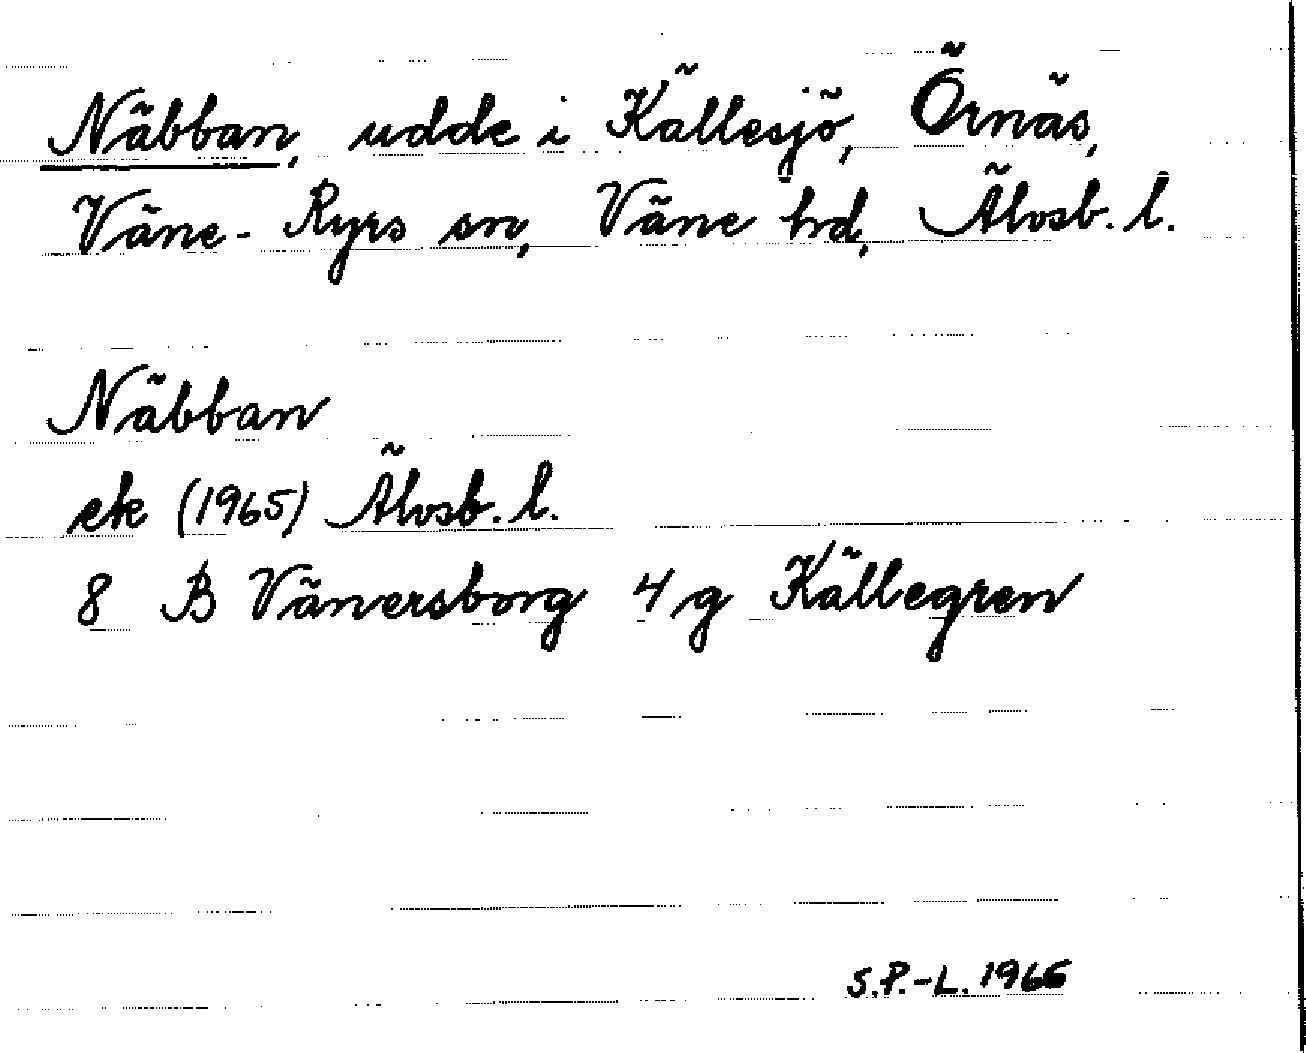 Näbban, udde i Källesjö, Örnäs,
Väne-Ryrs sn, Väne hd, Älvsb. l.
Näbban
ek (1965) Älvsb. l.
8 B Vänersborg 4 g Källegren
S.P.-L. 1966